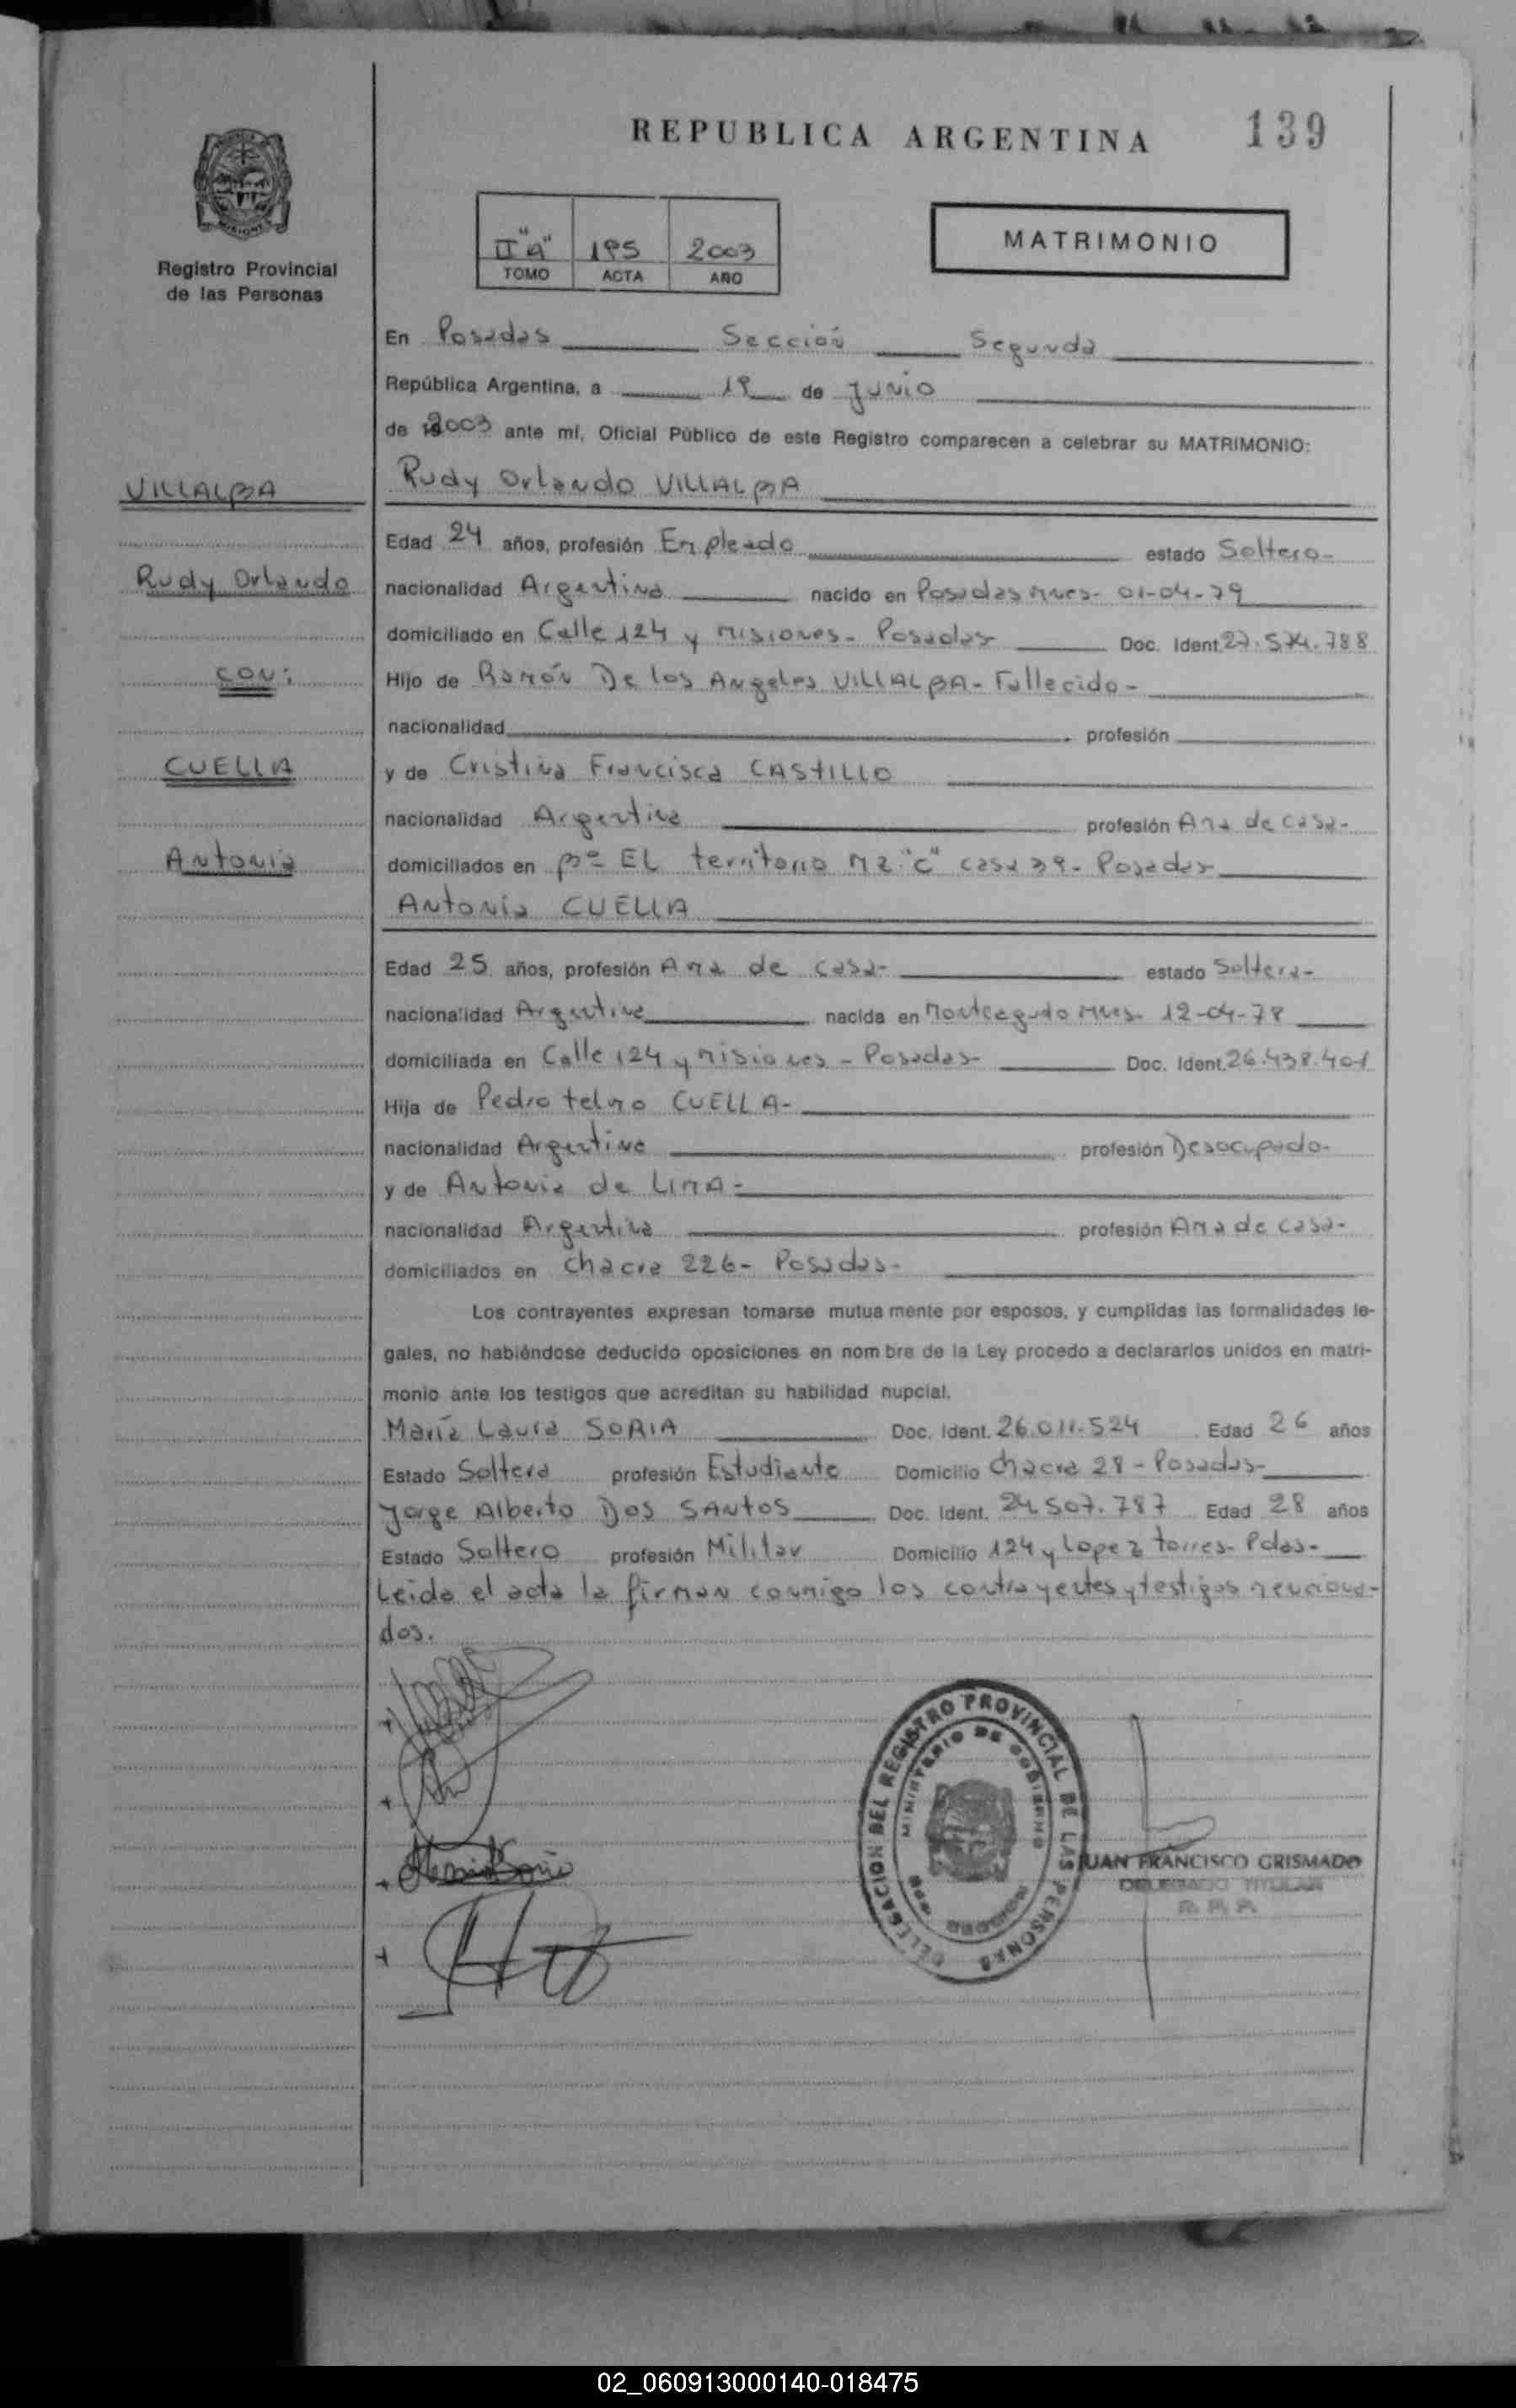 REPUBLICA ARGENTINA
139
Registro Provincial
de las Personas
II "A" 195 2003
TOMO ACTA AÑO
MATRIMONIO
En Posadas Sección Segunda
República Argentina, a 19 de Junio
de 2003 ante mí, Oficial Público de este Registro comparecen a celebrar su MATRIMONIO:
VILLALBA
Rudy Orlando
con:
CUELLA
Antonia
Rudy Orlando VILLALBA
Edad 24 años, profesión Empleado estado Soltero-
nacionalidad Argentina nacido en Posadas Mnes- 01-04-79
domiciliado en Calle 124 y Misiones- Posadas Doc. Ident. 27.574.788
Hijo de Ramón De los Angeles VILLALBA- Fallecido-
nacionalidad profesión
y de Cristina Francisca CASTILLO
nacionalidad Argentina profesión Ama de casa-
domiciliados en Bº EL territorio Mz "C" casa 39- Posadas
Antonia CUELLA
Edad 25 años, profesión Ama de casa- estado Soltera-
nacionalidad Argentina nacida en Monteagudo Mnes- 12-04-78
domiciliada en Calle 124 y Misiones - Posadas- Doc. Ident. 26.438.401
Hija de Pedro telmo CUELLA-
nacionalidad Argentina profesión Desocupado-
y de Antonia de LIMA-
nacionalidad Argentina profesión Ama de casa-
domiciliados en Chacra 226- Posadas-
Los contrayentes expresan tomarse mutua mente por esposos, y cumplidas las formalidades le-
gales, no habiéndose deducido oposiciones en nom bre de la Ley procedo a declararlos unidos en matri-
monio ante los testigos que acreditan su habilidad nupcial.
María Laura SORIA Doc. Ident. 26.011.524 Edad 26 años
Estado Soltera profesión Estudiante Domicilio Chacra 28 - Posadas-
Jorge Alberto Dos SANtos Doc. Ident. 24.507.787 Edad 28 años
Estado Soltero profesión Militar Domicilio 124 y Lopez torres- Pdas-
Leida el acta la firman conmigo los contrayentes y testigos menciona-
dos.
DELEGACION DEL REGISTRO PROVINCIAL DE LAS PERSONAS
MINISTERIO DE GOBIERNO
JUAN FRANCISCO GRISMADO
DELEGADO TITULAR
R. P. P.
02_060913000140-018475